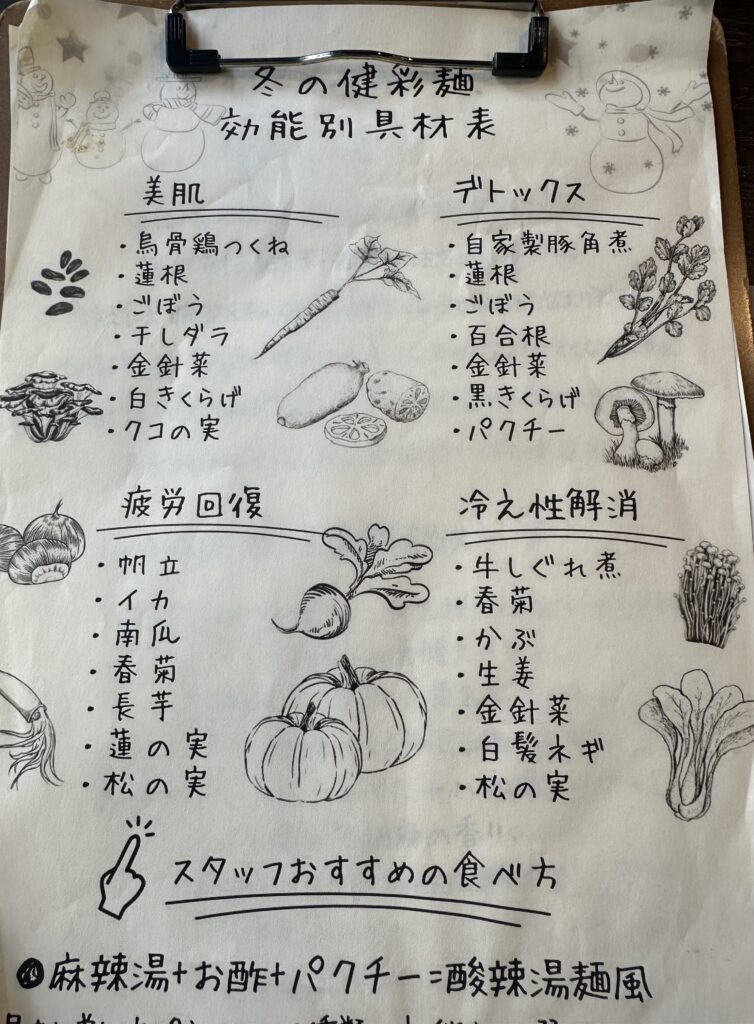 冬の健彩麺
効能別具材表
美肌
・烏骨鶏つくね
・蓮根
・ごぼう
・干しダラ
・金針菜
・白きくらげ
・クコの実
デトックス
・自家製豚角煮
・蓮根
・ごぼう
・百合根
・金針菜
・黒きくらげ
・パクチー
疲労回復
・帆立
・イカ
・南瓜
・春菊
・長芋
・蓮の実
・松の実
冷え性解消
・牛しぐれ煮
・春菊
・かぶ
・生姜
・金針菜
・白髪ネギ
・松の実
スタッフおすすめの食べ方
麻辣湯+お酢+パクチー=酸辣湯麺風